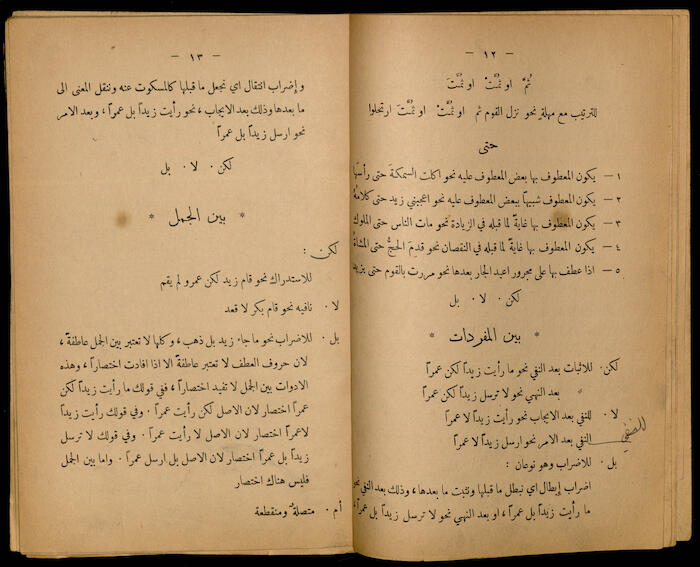 — ١٢ —
ثُمَّ او ثُمَّتْ او ثُمَّتَ
للترتيب مع مهلة نحو نزل القوم ثم او ثُمَّتْ او ثُمَّتَ ارتحلوا
حتى
١ — يكون المعطوف بها بعض المعطوف عليه نحو اكلت السمكة حتى رأسَها
٢ — يكون المعطوف شبيهاً ببعض المعطوف عليه نحو اعجبني زيد حتى كلامُهُ
٣ — يكون المعطوف بها غايةً لما قبله في الزيادة نحو مات الناس حتى الملوك
٤ — يكون المعطوف بها غايةً لما قبله في النقصان نحو قدِمَ الحجّ حتى المشاةُ
٥ — اذا عطف بها على مجرور اعيد الجار بعدها نحو مررت بالقوم حتى بزيد
لكن . لا . بل
* بين المفردات *
لكن . للاثبات بعد النفي نحو ما رأيت زيداً لكن عمراً
بعد النهي نحو لا ترسل زيداً لكن عمراً
لا . للنفي بعد الايجاب نحو رأيت زيداً لا عمراً
للنفي
النفي بعد الامر نحو ارسل زيداً لا عمراً
بل . للاضراب وهو نوعان :
اضراب إِبطال اي نبطل ما قبلها ونثبت ما بعدها، وذلك بعد النفي نحو
ما رأيت زيداً بل عمراً، او بعد النهي نحو لا ترسل زيداً بل عمراً،
— ١٣ —
و إضراب انتقال اي نجعل ما قبلها كالمسكوت عنه وننقل المعنى الى
ما بعدها وذلك بعد الايجاب، نحو رأيت زيداً بل عمراً، وبعد الامر
نحو ارسل زيداً بل عمراً
لكن . لا . بل
* بين الجمل *
لكن :
للاستدراك نحو قام زيد لكن عمرو لم يقم
لا . نافيه نحو قام بكر لا قعد
بل . للاضراب نحو ما جاء زيد بل ذهب، وكلها لا تعتبر بين الجمل عاطفة،
لان حروف العطف لا تعتبر عاطفةً الا اذا افادت اختصاراً، وهذه
الادوات بين الجمل لا تفيد اختصاراً، ففي قولك ما رأيت زيداً لكن
عمراً اختصار لان الاصل لكن رأيت عمراً . وفي قولك رأيت زيداً
لا عمراً اختصار لان الاصل لا رأيت عمراً . وفي قولك لا ترسل
زيداً بل عمراً اختصار لان الاصل بل ارسل عمراً . واما بين الجمل
فليس هناك اختصار
أم . متصلة ومنقطعة